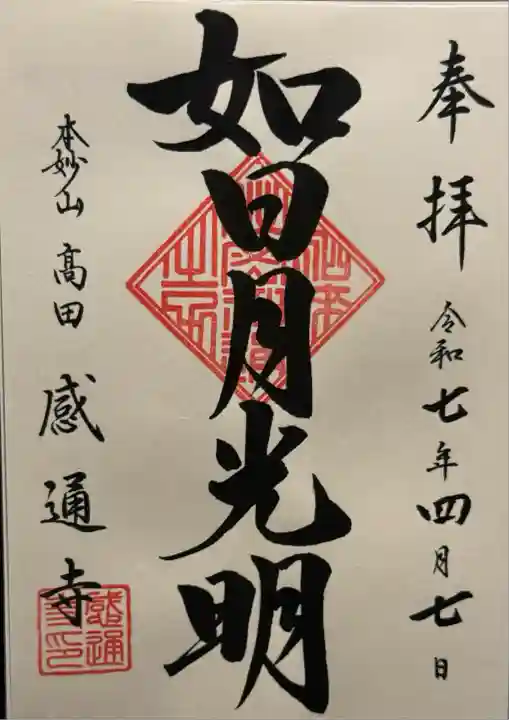 奉拝 令和七年四月七日
如日月光明
本妙山 髙田 感通寺